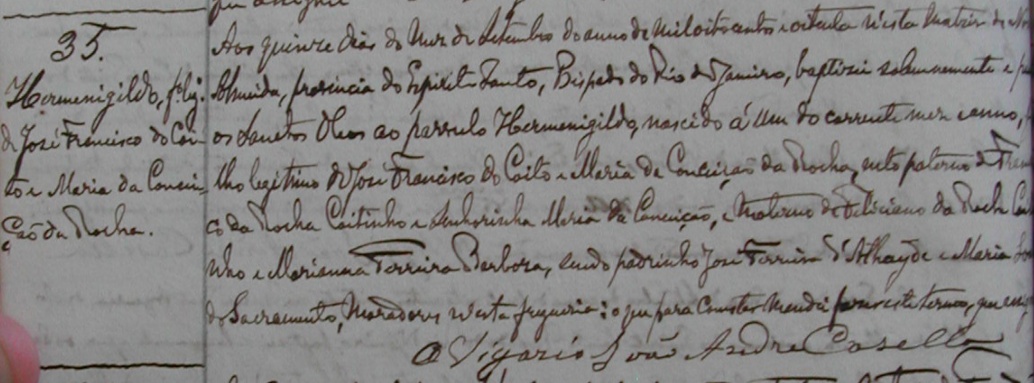 35.
Hermenigildo, fº lg.
de José Francisco do Coi-
to e Maria da Concei-
ção da Rocha.
Aos quinze dias do mez de Setembro do anno de mil oitocentos e oitenta n'esta Matriz de
Almeida, provincia do Espirito Santo, Bispado do Rio de Janeiro, baptizei solemnemente e
os Sanctos Oleos ao parvulo Hermenigildo, nascido á um do corrente mez e anno,
lho legitimo de José Francisco do Coito e Maria da Conceição da Rocha, neto paterno de Fran
co da Rocha Coitinho e Senhorinha Maria da Conceição, e Materno de Feliciano da Rocha
nho e Marianna Ferreira Barboza, sendo padrinho José Ferreira d'Athayde e Maria
do Sacramento, Moradores n'esta freguezia: o que para constar mandei fazer este termo, que
O Vigario João Andre Casella